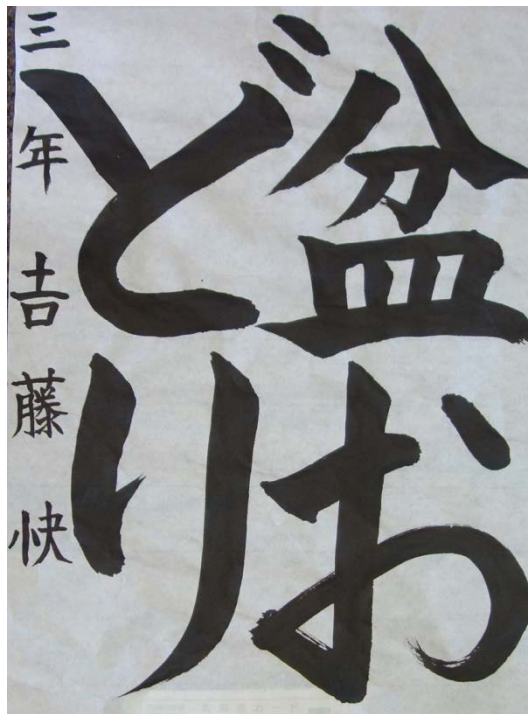 盆お
どり
三年吉藤快